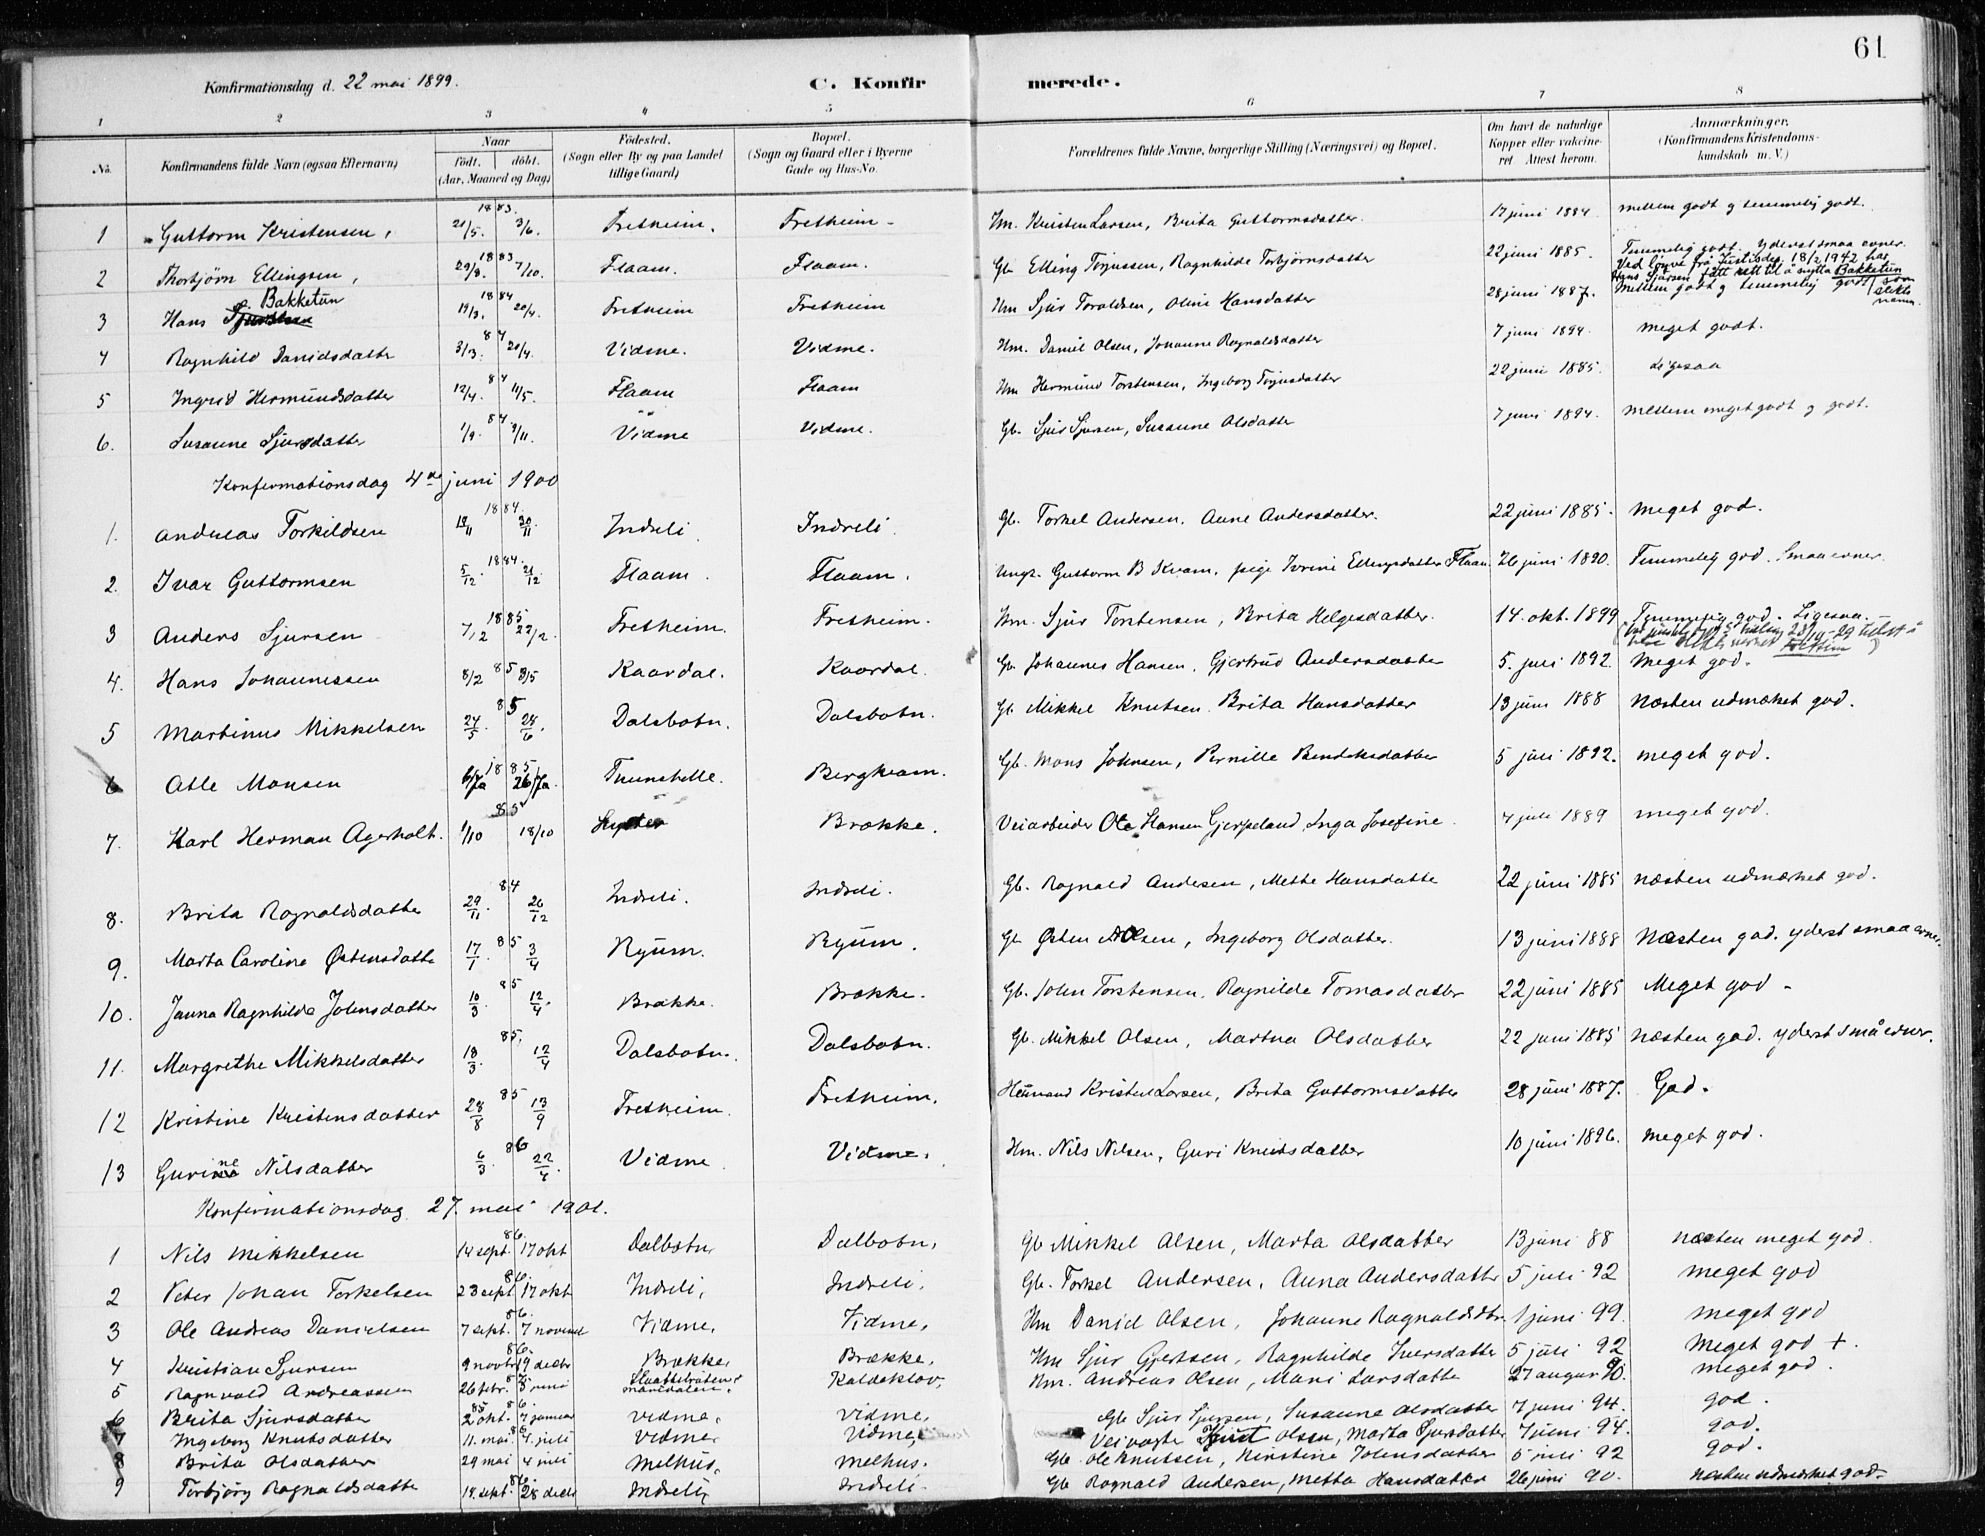 61
Konfirmationsdag d. 22 mai 1899. C. Konfirmerede.
1 2 3 4 5 6 7 8
No. Konfirmandens fulde Navn (ogsaa Efternavn) Naar født. døbt. (Aar, Maaned og Dag) Fødested. (Sogn eller By og paa Landet tillige Gaard) Bopæl. (Sogn og Gaard eller i Byerne Gade og Hus-No. Forældrenes fulde Navne, borgerlige Stilling (Næringsvei) og Bopæl. Om havt de naturlige Kopper eller vakcineret. Attest herom. Anmærkninger. (Konfirmandens Kristendomskundskab m. V.)
1 Guttorm Kristensen, 1883. 21/5. 3/6. Fretheim. Fretheim. Hm. Kristen Larsen, Brita Guttormsdatter. 17 juni 1884. mellem godt og temmelig godt.
2 Thorbjørn Ellingsen, 1883 29/9. 7/10. Flaam. Flaam. Gb Elling Torjussen, Ragnhilde Torbjørnsdatter 22 juni 1885. Temmelig godt. Yderst smaa evner.
Ved løyve frå Justisdep. 18/2 1942 har Hans Sjursen fått rett til å nytta Bakketun som slektsnamn.
3 Hans Sjursen Bakketun 1884 19/3. 20/4. Fretheim Fretheim Hm Sjur Toraldsen, Oline Hansdatter 28 juni 1887. Mellem godt og temmelig godt
4 Ragnhild Danidsdatter 84 3/3. 20/4. Vidme. Vidme. Hm. Daniel Olsen, Johanne Ragnaldsdatter 7 juni 1894. meget godt.
5 Ingrid Hermundsdatter 84 12/4. 11/5. Flaam Flaam Hm Hermund Torstensen, Ingeborg Torjusdatter 22 juni 1885. Ligesaa
6. Susanne Sjursdatter 84. 1/9. 9/11. Vidme Vidme. Gb. Sjur Sjursen, Susanne Olsdatter 7 juni 1894. mellem meget godt og godt.
Konfirmationsdag 4de juni 1900
1. Andreas Torkildsen 1884. 30/11. Indreli Indreli Gb. Torkel Andersen. Anne Andersdatter. 22 juni 1885. Meget god.
2. Ivar Guttormsen 1884. 5/12. 21/12. Flaam. Flaam. Ungk. Guttorm B Kvam, pige Ivrine Ellingsdatter Flaam 26 juni 1890. Temmelig god. Smaa evner.
3 Anders Sjursen 1885 7/12 22/2. Fretheim. Fretheim. Hm. Sjur Torstensen, Brita Helgesdatter. 14. okt. 1899 Temmelig god. Ligesaa.
4. Hans Johannessen 85 8/2 3/5 Kaardal. Kaardal. Gb Johannes Hansen, Gjertrud Andersdatter 5. juli 1892. Meget god.
5 Martinus Mikkelsen 85 24/5. 28/6. Dalsbotn. Dalsbotn. Gb Mikkel Knutsen. Brita Hansdatter 13 juni 1888 Næsten udmærket god.
6 Atle Monsen 1885. 6/7a 26/7a. Tunshelle. Bergkvam. Gb. Mons Johnsen, Pernille Bendiksdatter 5 juli 1892. meget god.
7. Karl Herman Agerholt. 85 1/10 18/10 Brække. Veiarbeider Ole Hansen Gjerpeland, Inga Josefine. 4 juli 1889 meget god.
8. Brita Ragnaldsdatter 84 29/11. 26/12 Indreli. Indreli. Gb. Ragnald Andersen, Mette Hansdatte 22 juni 1885 næsten udmærket god.
9. Marta Caroline Østensdatte 85 17/1. 3/4 Ryum. Ryum. Gb Østen Olsen, Ingeborg Olsdatter. 13 juni 1888 Næsten god. yderst smaa evner.
10. Janna Ragnhilde Johnsdatter 85 10/3. 12/4. Brække. Brække. Gb. John Torstensen. Ragnilde Tomasdatter 22 juni 1885 Meget god
11. Margrethe Mikkelsdatter 85. 18/3. 12/4 Dalsbotn. Dalsbotn. Gb. Mikkel Olsen, Martna Olsdatter 22 juni 1885 næsten god. yderst små evner.
12 Kristine Kristensdatter 85 28/8 13/9 Fretheim. Fretheim. Huusmand Kristen Larsen, Brita Guttormsdatter 28 juni 1887. God.
13 Gurine Nilsdatter 86 6/3. 22/4. Vidme Vidme. Hm. Nils Nilsen, Guri Knutsdatter 10 juni 1896. meget god.
Konfirmationsdag 27. mai 1901.
1 Nils Mikkelsen 86. 14 sept. 17 okt Dalbotn. Dalbotn. Gb Mikkel Olsen, Marta Olsdatter 13 juni 88 næsten meget god.
2 Peter Johan Torkelsen 86. 23 sept 17 okt Indreli, Indreli. Gb. Torkel Andersen, Anna Andersdatter 5 juli 92 meget god
3 Ole Andreas Danielsen 86. 7 sept. 7 novemb Vidme, Vidme, Hm Daniel Olsen, Johanne Ragnaldsdtr 1 juni 99. meget god
4 Kristian Sjursen 86. 9 novbr 19 decbr Brække, Brække, Hm Sjur Gjertsen, Ragnhilde Iversdatter 5 juli 92 Meget god +.
5 Ragnvald Andreassen 87. 26 febr. 5 juni maridalen. Kaldeklov, Hm. Andreas Olsen, Mari Larsdatte 27 august 90. meget god.
6 Brita Sjursdatter 85 86. 2 okt. 7 januar vidme, vidme, Gb Sjur Sjursen, Susanne Olsdatter 7 juni 94. god.
7 Ingeborg Knutsdatter 86 11. mai 4. juli vidme. Vidme, Veivogte Knut Olsen, Marta Sjursdatter 7 juni 94. god.
8 Brita Olsdatter 29 mai 4 juli Melhus, melhus. Gb. Ole Knutsen, Kirstine Johnsdatter 5 juli 92 god.
9 Torbjørg Ragnaldsdatte 86. 18. sept. 28 decbr Indreli, Indreli. Gb Ragnald Andersen, Metta Hansdatter 26 juni 90. næsten udmærket god.